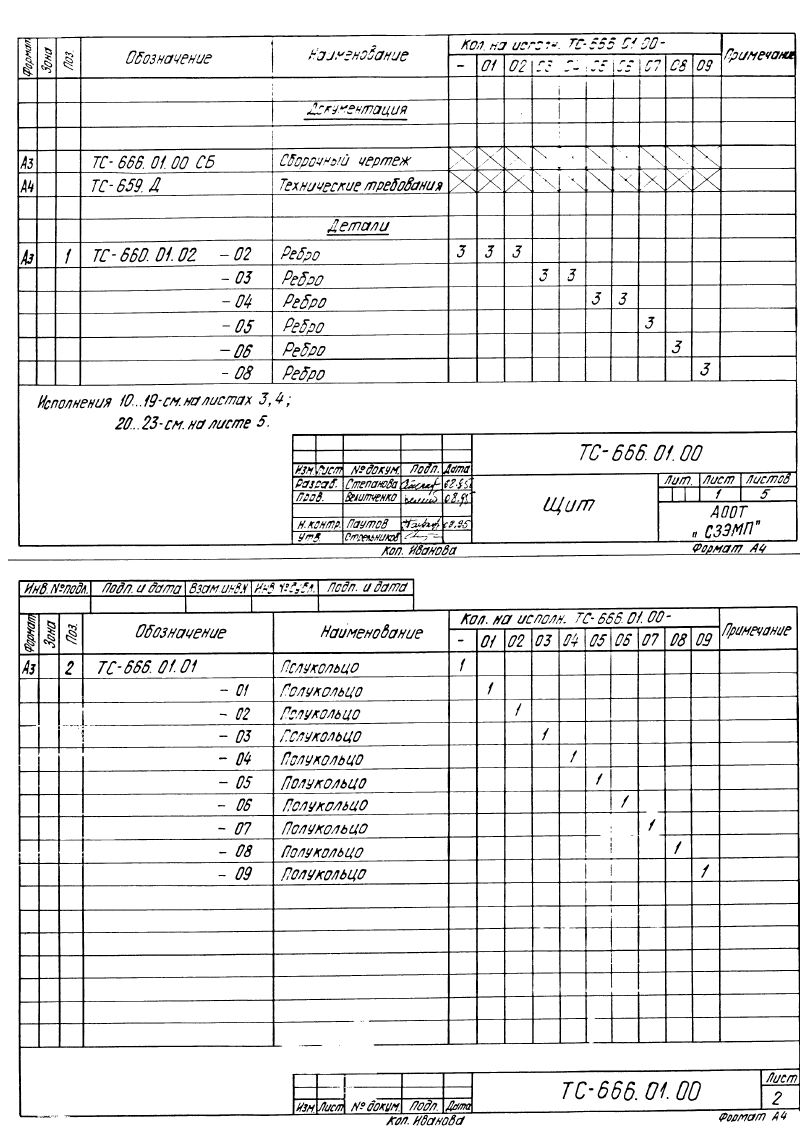 Формат Зона Поз. Обозначение Наименование Кол. на исполн. ТС-666.01.00- Примечание
- 01 02 03 04 05 06 07 08 09
Документация
А3 ТС-666.01.00 СБ Сборочный чертеж
А4 ТС-659. Д Технические требования
Детали
А3 1 ТС-660.01.02 -02 Ребро 3 3 3
-03 Ребро 3 3
-04 Ребро 3 3
-05 Ребро 3
-06 Ребро 3
-08 Ребро 3
Исполнения 10...19-см. на листах 3, 4;
20...23-см. на листе 5.
ТС-666.01.00
Изм. Лист № докум. Подп. Дата
Разраб. Степанова
Пров. Велитченко
Н.контр. Паутов
Утв. Стрельников
Щит
Лит. Лист Листов
1 5
АООТ
„СЗЭМП"
Коп. Иванова Формат А4
Инв.№подл. Подп. и дата Взам.инв.№ Инв.№дубл. Подп. и дата
Формат Зона Поз. Обозначение Наименование Кол. на исполн. ТС-666.01.00- Примечание
- 01 02 03 04 05 06 07 08 09
А3 2 ТС-666.01.01 Полукольцо 1
-01 Полукольцо 1
-02 Полукольцо 1
-03 Полукольцо 1
-04 Полукольцо 1
-05 Полукольцо 1
-06 Полукольцо 1
-07 Полукольцо 1
-08 Полукольцо 1
-09 Полукольцо 1
Изм Лист № докум. Подп. Дата
ТС-666.01.00
Лист
2
Коп. Иванова Формат А4